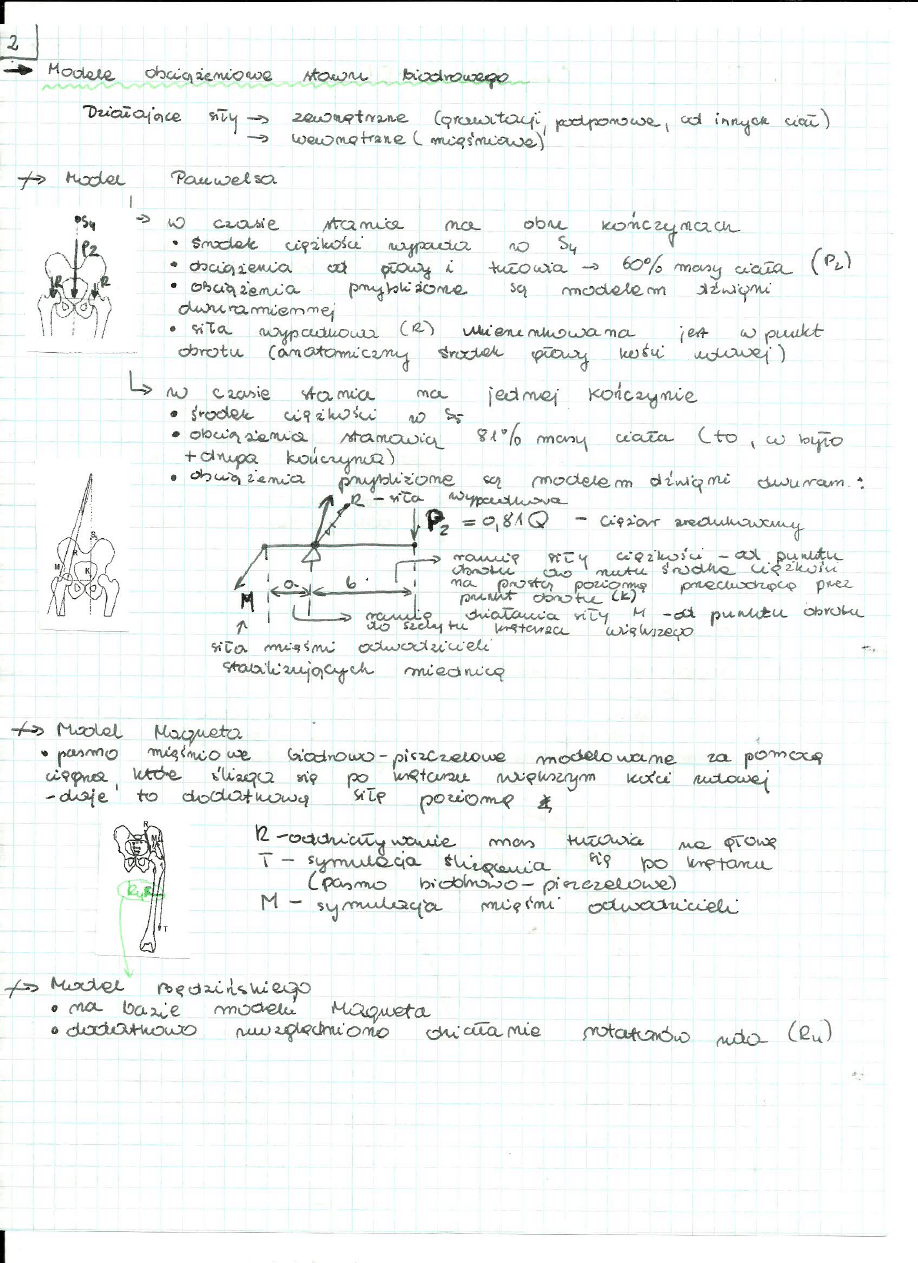 2
→ Modele obciążeniowe stawu biodrowego
Działające siły → zewnętrzne (grawitacji, podporowe, od innych ciał)
→ wewnętrzne (mięśniowe)
→ Model Pauwelsa
→ w czasie stania na obu kończynach
• środek ciężkości wypada w S4
• obciążenia od głowy i tułowia → 60% masy ciała (P2)
• obciążenia przybliżone są modelem dźwigni
dwuramiennej
• siła wypadkowa (R) ukierunkowana jest w punkt
obrotu (anatomiczny środek głowy kości udowej)
S4
P2
R R
→ w czasie stania na jednej kończynie
• środek ciężkości w S5
• obciążenia stanowią 81% masy ciała (to, co było
+ druga kończyna)
• obciążenia przybliżone są modelem dźwigni dwuram.:
R - siła wypadkowa
P2 = 0,81Q - ciężar zredukowany
→ ramię siły ciężkości - od punktu
obrotu do rzutu środka ciężkości
na prostą poziomą przechodzącą przez
punkt obrotu (K)
a b
M
→ ramię działania siły M - od punktu obrotu
do szczytu krętarza większego
siła mięśni odwodzicieli
stabilizujących miednicę
S5
R
M
K
→ Model Maqueta
• pasmo mięśniowe biodrowo-piszczelowe modelowane za pomocą
cięgna, które ślizga się po krętarzu większym kości udowej
- daje to dodatkową siłę poziomą
R - oddziaływanie mas tułowia na głowę
T - symulacja ślizgania się po krętarzu
(pasmo biodrowo-piszczelowe)
M - symulacja mięśni odwodzicieli
R
M
T
→ Model Będzińskiego
• na bazie modelu Maqueta
• dodatkowo uwzględniono działanie rotatorów uda (Ru)